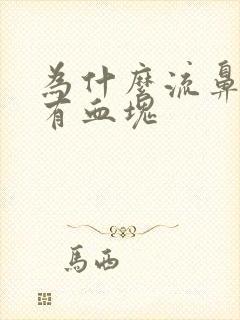 為什麼流鼻
有血塊
馬西